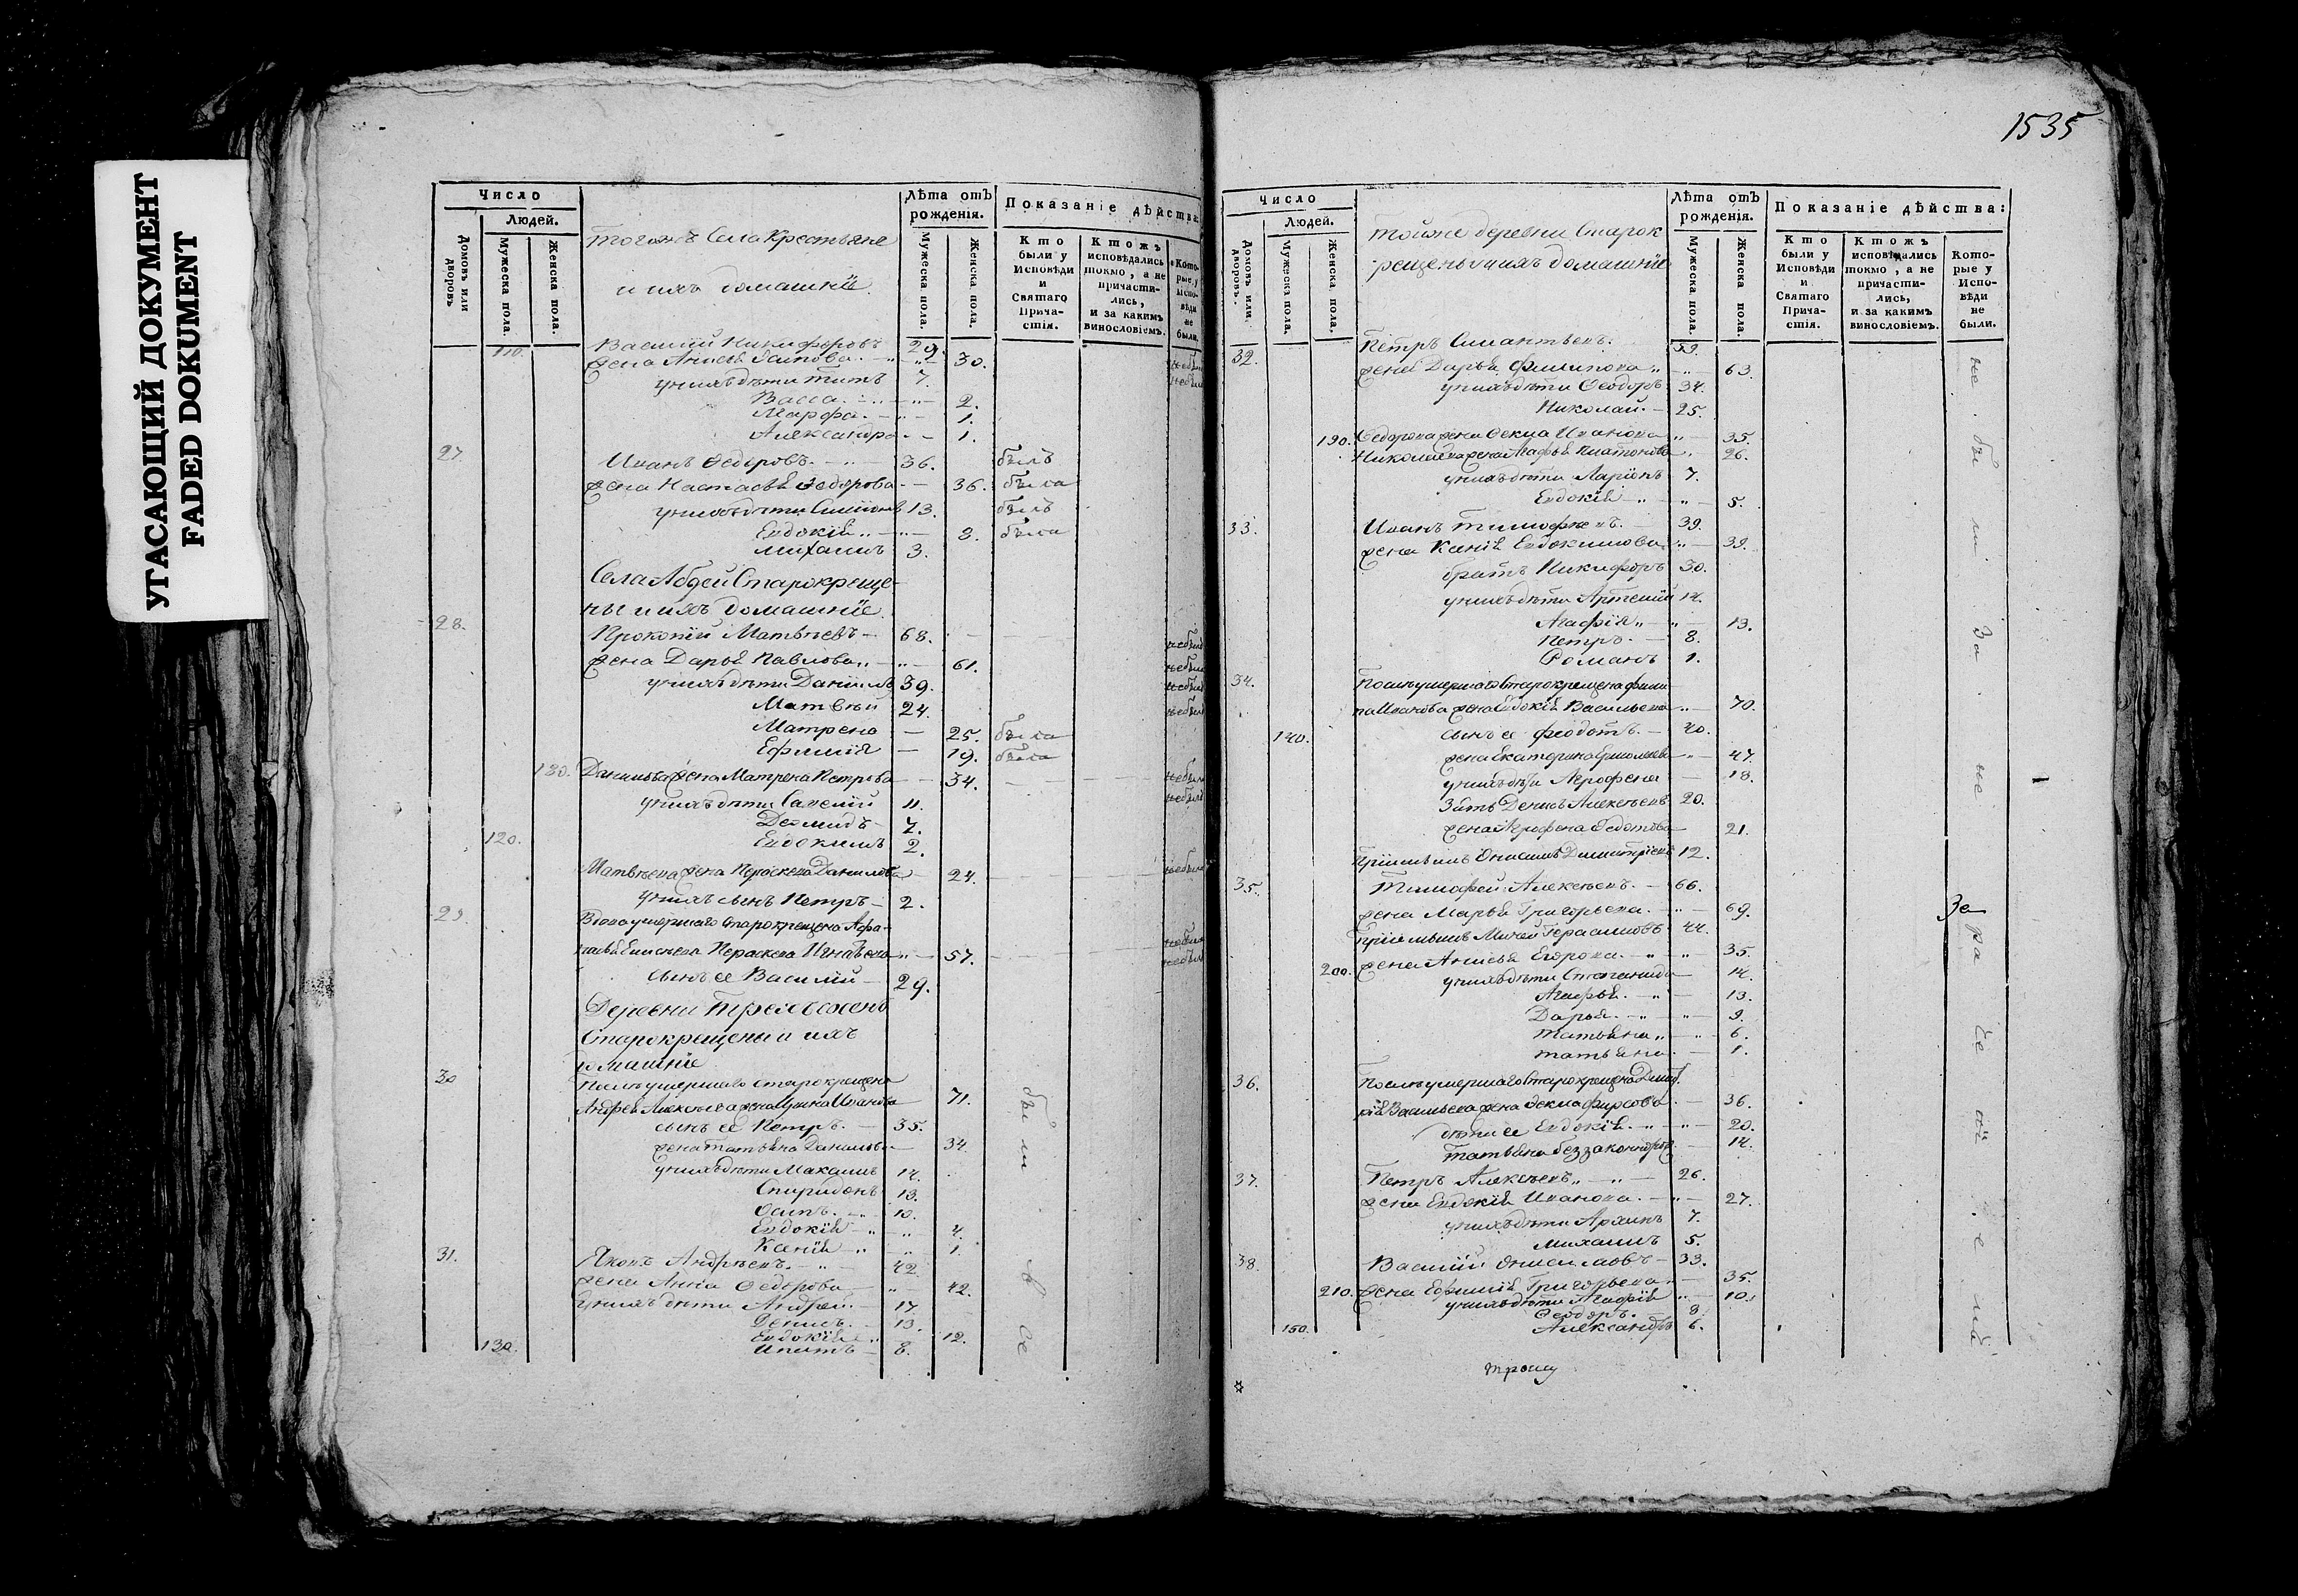 УГАСАЮЩИЙ ДОКУМЕНТ
FADED DOKUMENT
1535
Число
Людей.
Домовъ или дворовъ
Мужеска пола.
Женска пола.
Тогожъ Села Крестьяне
и ихъ домашнїе.
Лѣта отъ рожденія.
Мужеска пола.
Женска пола.
Показаніе дѣйства:
Кто были у Исповѣди и Святаго Прича-стія.
Ктожъ исповѣдались токмо, а не причасти-лись, и за какимъ винословіемъ.
Кото-рые у Испо-вѣди не были.
110. Василій Никифоровъ 29.
жена Анисья 30. небыла
унихъ дѣти Титъ 7. небылъ
Васса 2.
Марфа 1.
Александра 1.
27. Иванъ Ѳедоровъ 36. былъ
жена Настасья Ѳедорова 36. была
унихъ дѣти Симионъ 13. былъ
Евдокія 8. была
Михаилъ 3.
Села Абдеи Старокреще-
ны и ихъ домашнїе
28. Прокопій Матвѣевъ 68. небылъ
жена Дарья Павлова 61. небыла
унихъ дѣти Данилъ 39. небылъ
Матвѣй 24. небылъ
Матрена 25. была
Ефимія 19. была
180. Данилова жена Матрена Петрова 34. небыла
унихъ дѣти Савелій 11. небылъ
Деомидъ 7.
120. Евдокимъ 2.
Матвѣева жена Параскева Данилова 24. небыла
унихъ сынъ Петръ 2.
29. Вдова умершаго Старокрещена Афа-
насья Елисѣева Параскева Игнатьева 57. небыла
сынъ ее Василій 29. небылъ
Деревни
Старокрещены и ихъ
домашнїе
30 Послѣ умершаго Старокрещена
Андрея Алексѣева жена Ивановa 71. были
сынъ ее Петръ 35.
жена Татьяна Данилова 34
унихъ дѣти Макаимъ 14.
Спиридонъ 13.
Осипъ 10.
Евдокія 4.
Ксенія 1.
31. Яковъ Андрѣевъ 42
жена Анна Ѳедорова 42.
унихъ дѣти Андрей 17
Денисъ 13.
Евдокія 12.
130. Ипатъ 8.
Число
Людей.
Домовъ или дворовъ.
Мужеска пола.
Женска пола.
Тойже деревни Старок
рещены и ихъ домашнїе
Лѣта отъ рожденія.
Мужеска пола.
Женска пола.
Показаніе дѣйства:
Кто были у Исповѣди и Святаго Прича-стія.
Ктожъ исповѣдались токмо, а не причасти-лись, и за какимъ винословіемъ.
Кото-рые у Испо-вѣди не были.
32. Петръ 59.
жена Дарья Филипова 63.
унихъ дѣти Ѳеодоръ 34.
Николай 25.
190. Ѳедорова жена Ѳекла Иванова 35.
Николаева жена Агафья Платонова 26.
унихъ дѣти Ларіонъ 7.
Евдокія 5.
33. Иванъ Тимофѣевъ 39.
жена Ксенія Евдокимова 39.
братъ Никифоръ 30.
унихъ дѣти Артемій 14.
Агафія 13.
Петръ 8.
Романъ 1.
34. Послѣ умершаго Старокрещена Фили
па Иванова жена Евдокія Васильева 70.
140. сынъ ее Феодотъ 40.
жена Екатерина 47.
унихъ дѣти Агрофена 18.
Зять Денисъ Алексѣевъ 20.
жена Агрофена Ѳедотова 21.
Пріимышъ Онисимъ Димитріевъ 12.
35. Тимофей Алексѣевъ 66.
жена Марья Григорьева 69.
Пріимышъ Герасимовъ 44.
200. жена Анисья Егорова 35.
унихъ дѣти Степанида 14.
Агафья 13.
Дарья 9.
Татьяна 6.
Татьяна 1.
36. Послѣ умершаго Старокрещена Димит
рія Васильева жена Ѳекла Фирсова 36.
дѣти ее Евдокія 20.
Татьяна беззаконнорож 14.
37. Петръ Алексѣевъ 26.
жена Евдокія Иванова 27.
унихъ дѣти Архипъ 7.
Михаилъ 5.
38. Василій Онисимовъ 33.
210. жена Ефимія Григорьева 35.
унихъ дѣти Агафія 10.
Ѳеодоръ 8.
150. Александръ 6.
не были за не
За